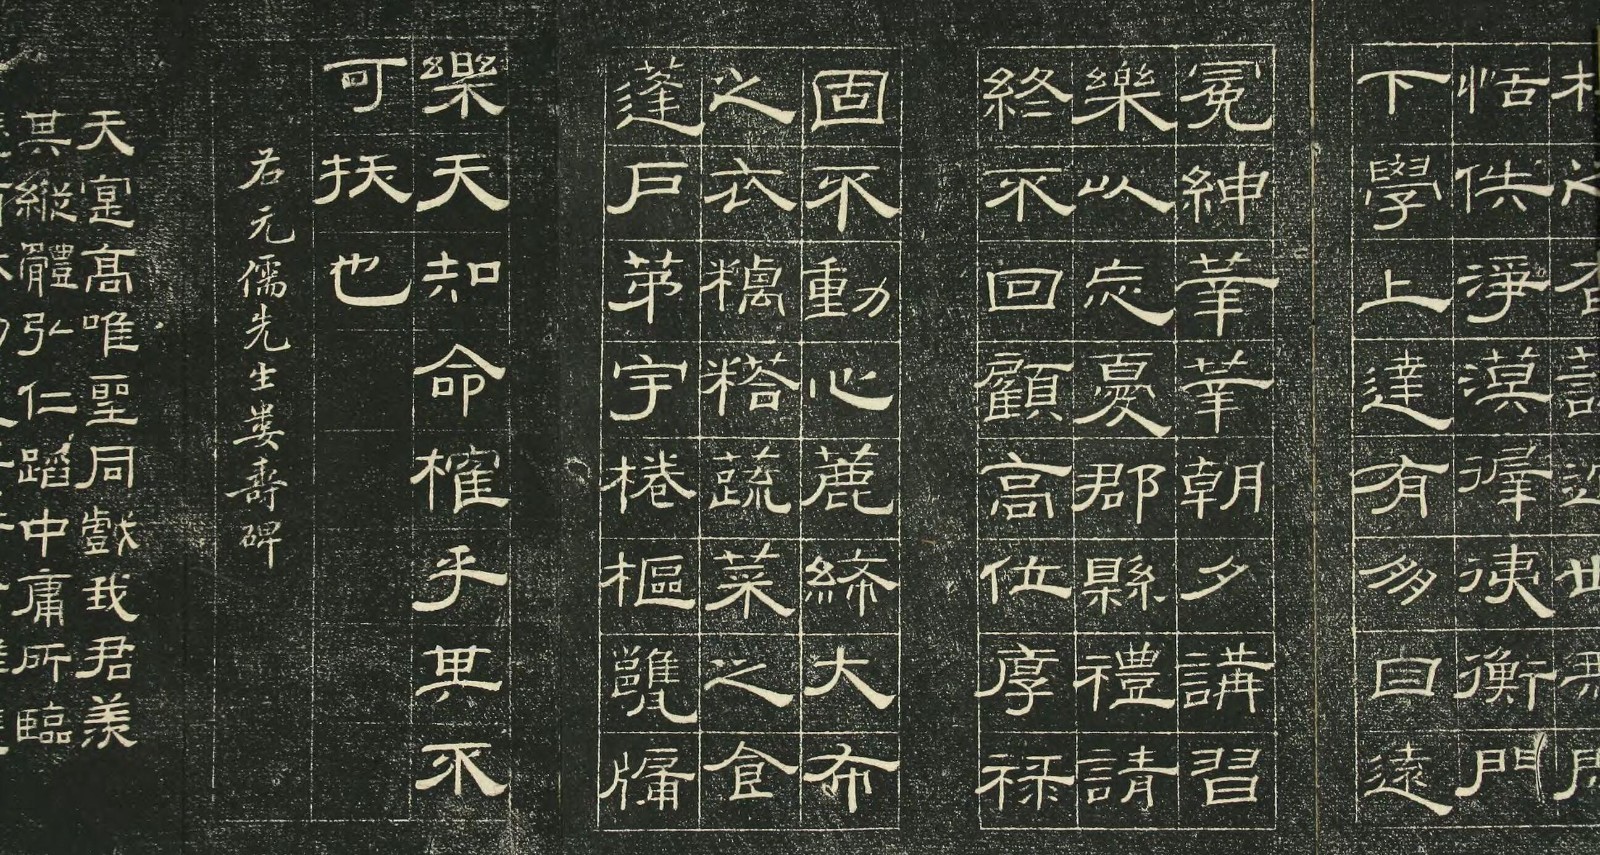 恬佚淨漠徲衡門
下學上達有朋自遠
冕紳莘莘朝夕講習
樂以忘憂郡縣禮請
終不回顧高位厚祿
固不動心麤絺大布
之衣糲䊪蔬菜之食
蓬戶茅宇棬樞甕牖
樂天知命榷乎其不
可拔也
右元儒先生婁壽碑
天寔高唯聖同戲我君羡
其縱體弘仁蹈中庸所臨